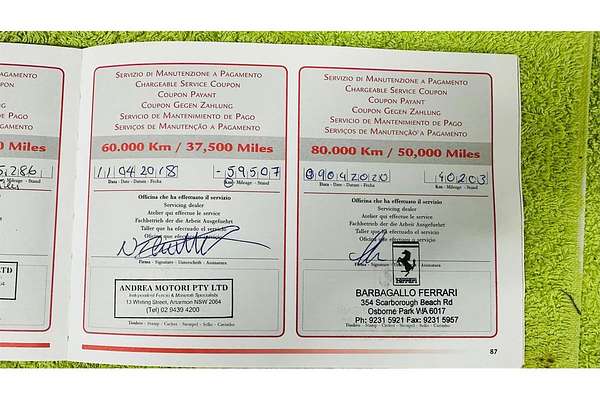 AGAMENTO
PON
G
PAGO
AGAMENTO
0 Miles
5,286
Stand
LTD
SERVIZIO DI MANUTENZIONE A PAGAMENTO
CHARGEABLE SERVICE COUPON
COUPON PAYANT
COUPON GEGEN ZAHLUNG
SERVICIO DE MANTENIMIENTO DE PAGO
SERVIÇOS DE MANUTENÇÃO A PAGAMENTO
60.000 Km / 37,500 Miles
11042018 -59507
Data - Date - Datum - Fecha Km - Mileage - Stand
Officina che ha effettuato il servizio
Servicing dealer
Atelier qui effectue le service
Fachbetrieb der die Arbeit Ausgefuehrt
Taller que ha efectuado el servicio
Oficina que efectuou
Firma - Signature - Unterschrift - Assinatura
ANDREA MOTORI PTY LTD
Independent Ferrari & Maserati Specialists
13 Whiting Street, Artarmon NSW 2064
Tel) 02 9439 4200
Timbro - Stamp - Cachet - Stempel - Sello - Carimbo
SERVIZIO DI MANUTENZIONE A PAGAMENTO
CHARGEABLE SERVICE COUPON
COUPON PAYANT
COUPON GEGEN ZAHLUNG
SERVICIO DE MANTENIMIENTO DE PAGO
SERVIÇOS DE MANUTENÇÃO A PAGAMENTO
80.000 Km / 50,000 Miles
09042020 40203
Data - Date - Datum - Fecha Km - Mileage - Stand
Officina che ha effettuato il servizio
Servicing dealer
Atelier qui effectue le service
Fachbetrieb der die Arbeit Ausgefuehrt
Taller que ha efectuado el servicio
Oficina que efectuou o serviço
Firma - Signature Assinatura
Ferrari
BARBAGALLO FERRARI
354 Scarborough Beach Rd
Osborne Park WA 6017
Ph: 9231 5921 Fax: 9231 5957
Timbro - Stamp - Cachet - Stempel - Sello - Carimbo
87